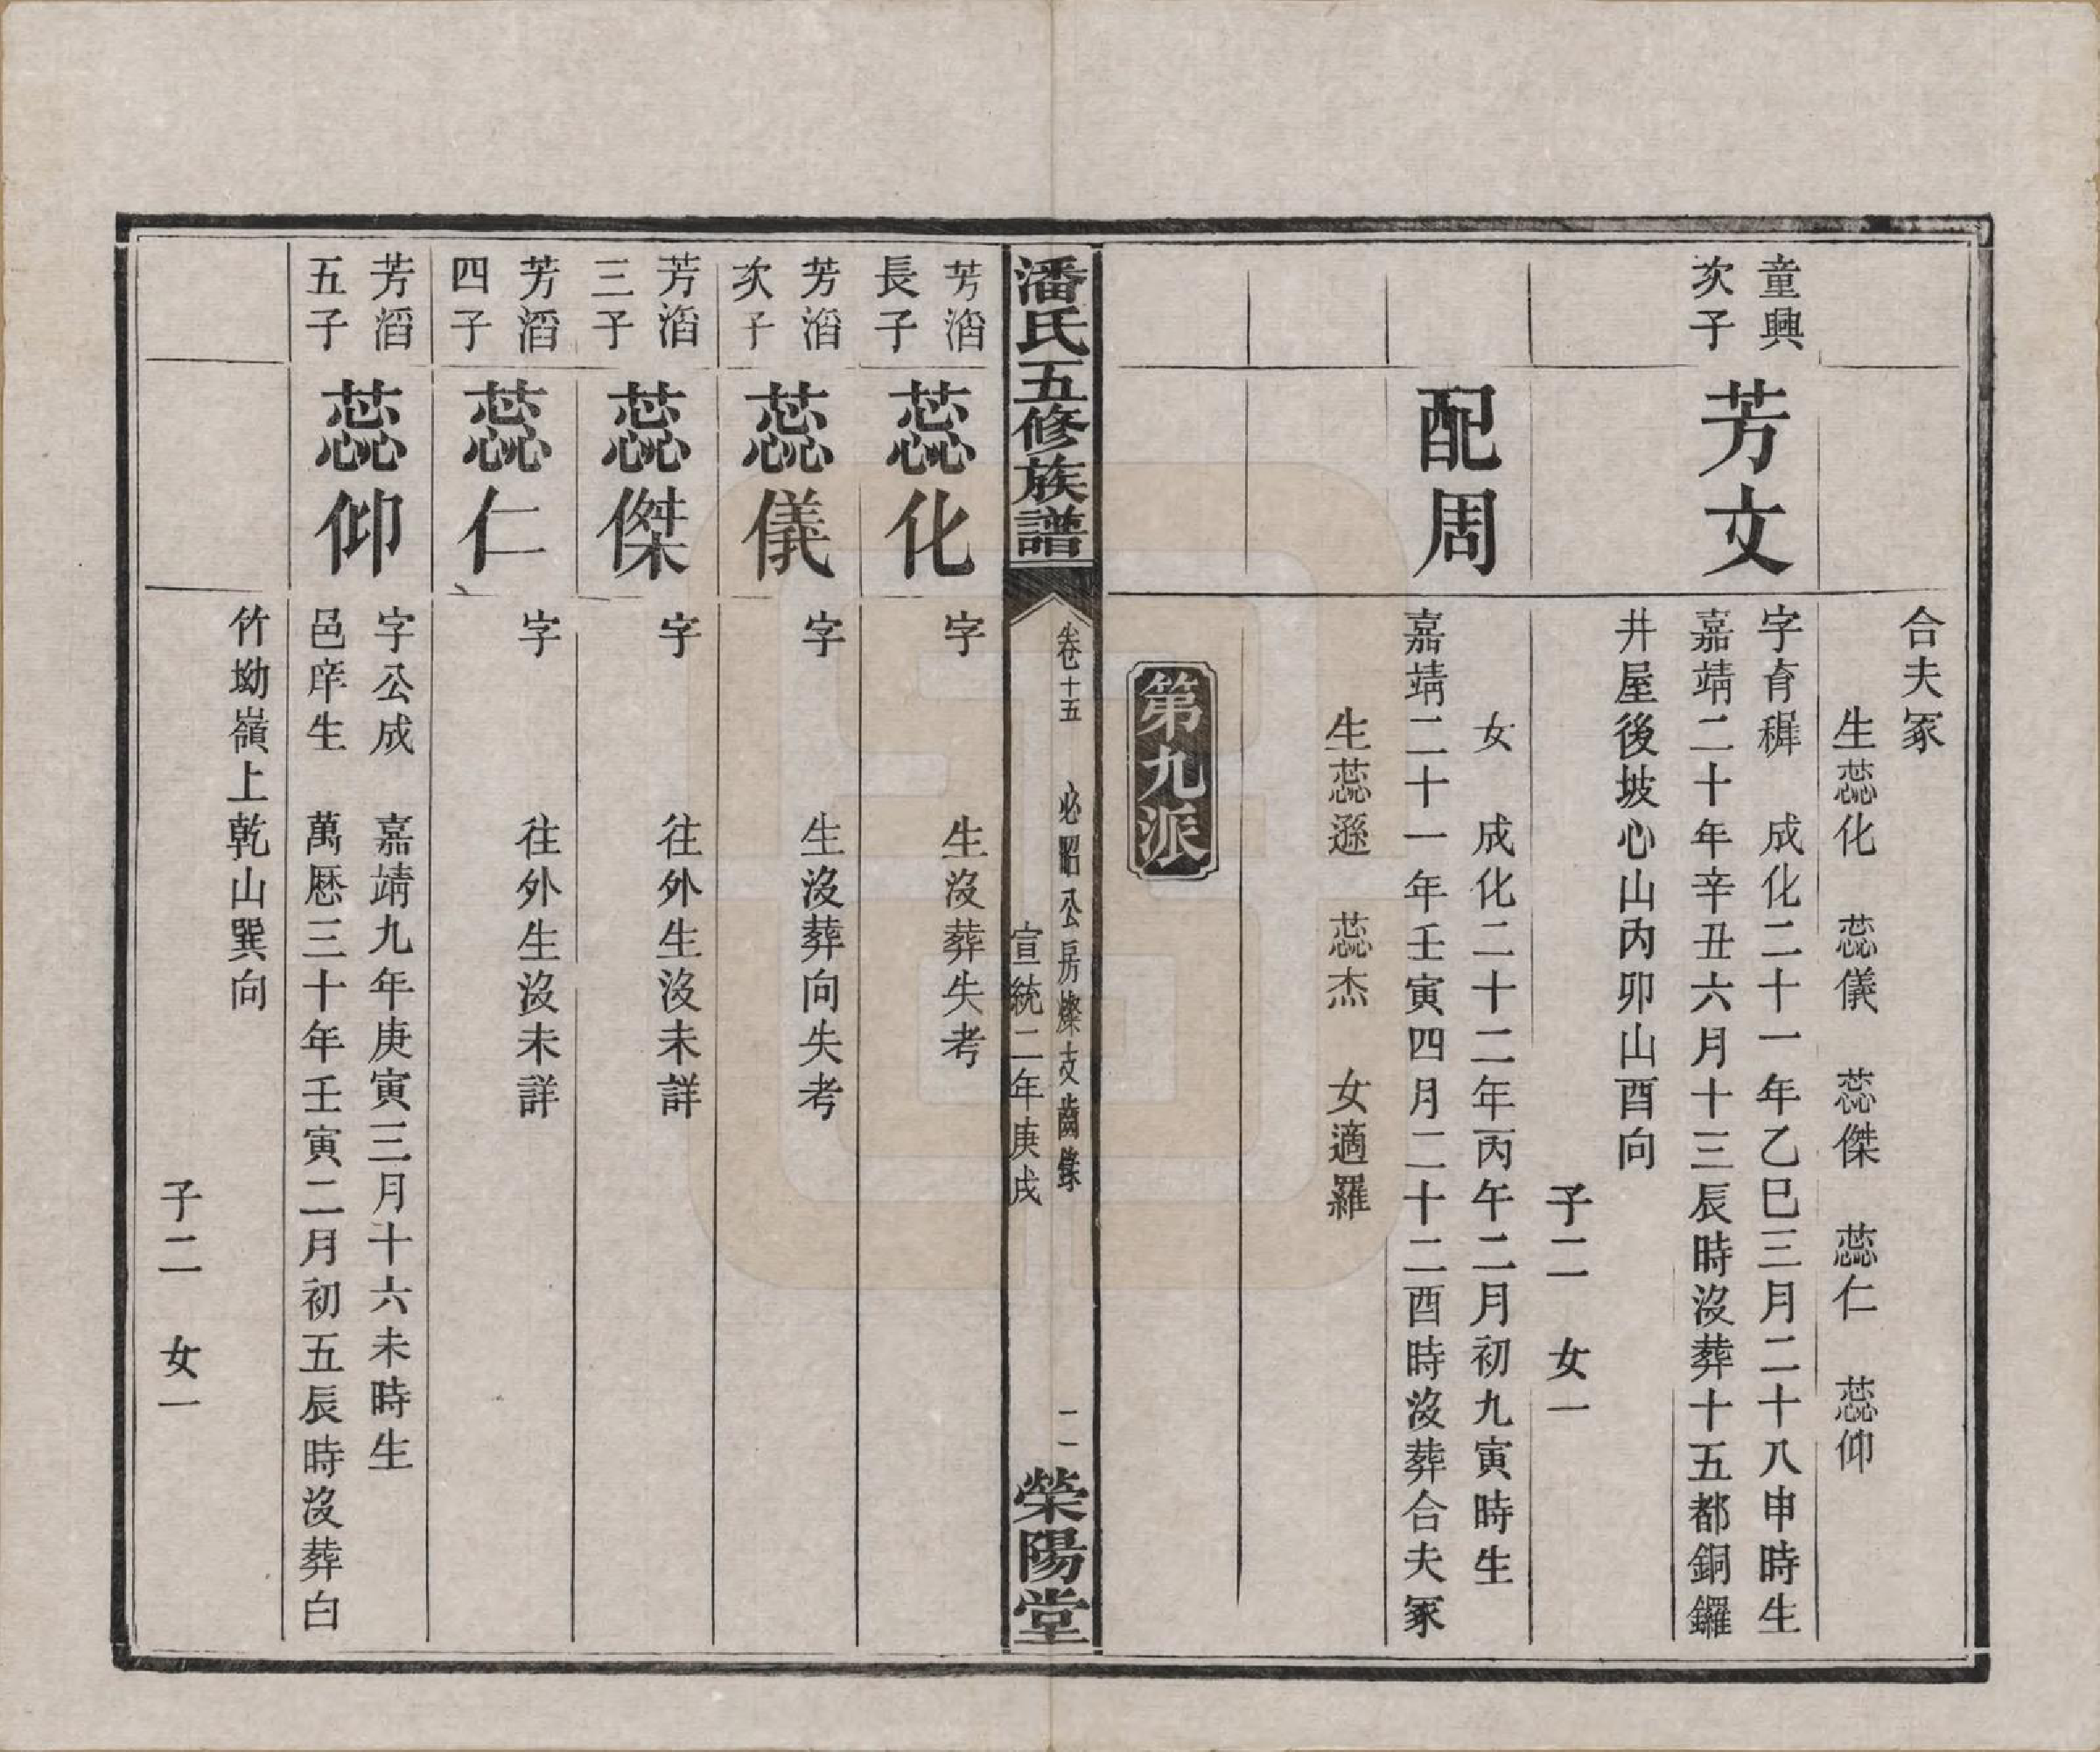 合夫冢
生蕊化　蕊儀　蕊傑　蕊仁　蕊仰
童興次子
芳文
字育穉　成化二十一年乙巳三月二十八申時生
嘉靖二十年辛丑六月十三辰時沒葬十五都銅鑼
井屋後坡心山內卯山酉向
子二　女一
配周
女　成化二十二年丙午二月初九寅時生
嘉靖二十一年壬寅四月二十二酉時沒葬合夫冢
生蕊遜　蕊杰　女適羅
第九派
潘氏五修族譜
卷十五　必昭公房燦支齒錄　二
宣統二年庚戌
榮陽堂
芳滔長子
蕊化
字　生沒葬失考
芳滔次子
蕊儀
字　生沒葬向失考
芳滔三子
蕊傑
字　往外生沒未詳
芳滔四子
蕊仁
字　往外生沒未詳
芳滔五子
蕊仰
字公成　嘉靖九年庚寅三月十六未時生
邑庠生　萬厯三十年壬寅二月初五辰時沒葬白
竹坳嶺上乾山巽向
子二　女一